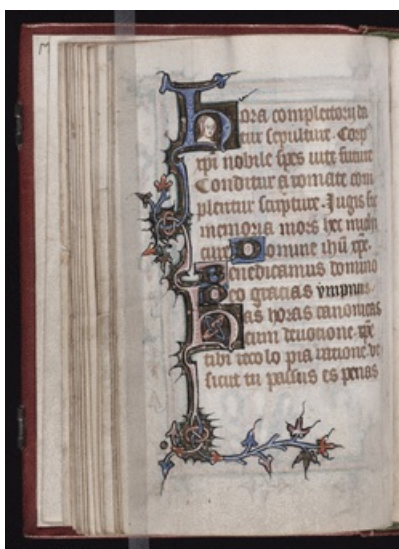 Hora completorij da
tur sepulture. Corp
xpi nobile spes uite future
Conditur aromate com
plentur scripture. Jugis sit
memoria mors hec michi
cure. Domine ihu xpe.
Benedicamus domino
Deo gracias ympnus.
Has horas canonicas
cum deuotione xpe
tibi recolo pia ratione vt
sicut tu passus es penas